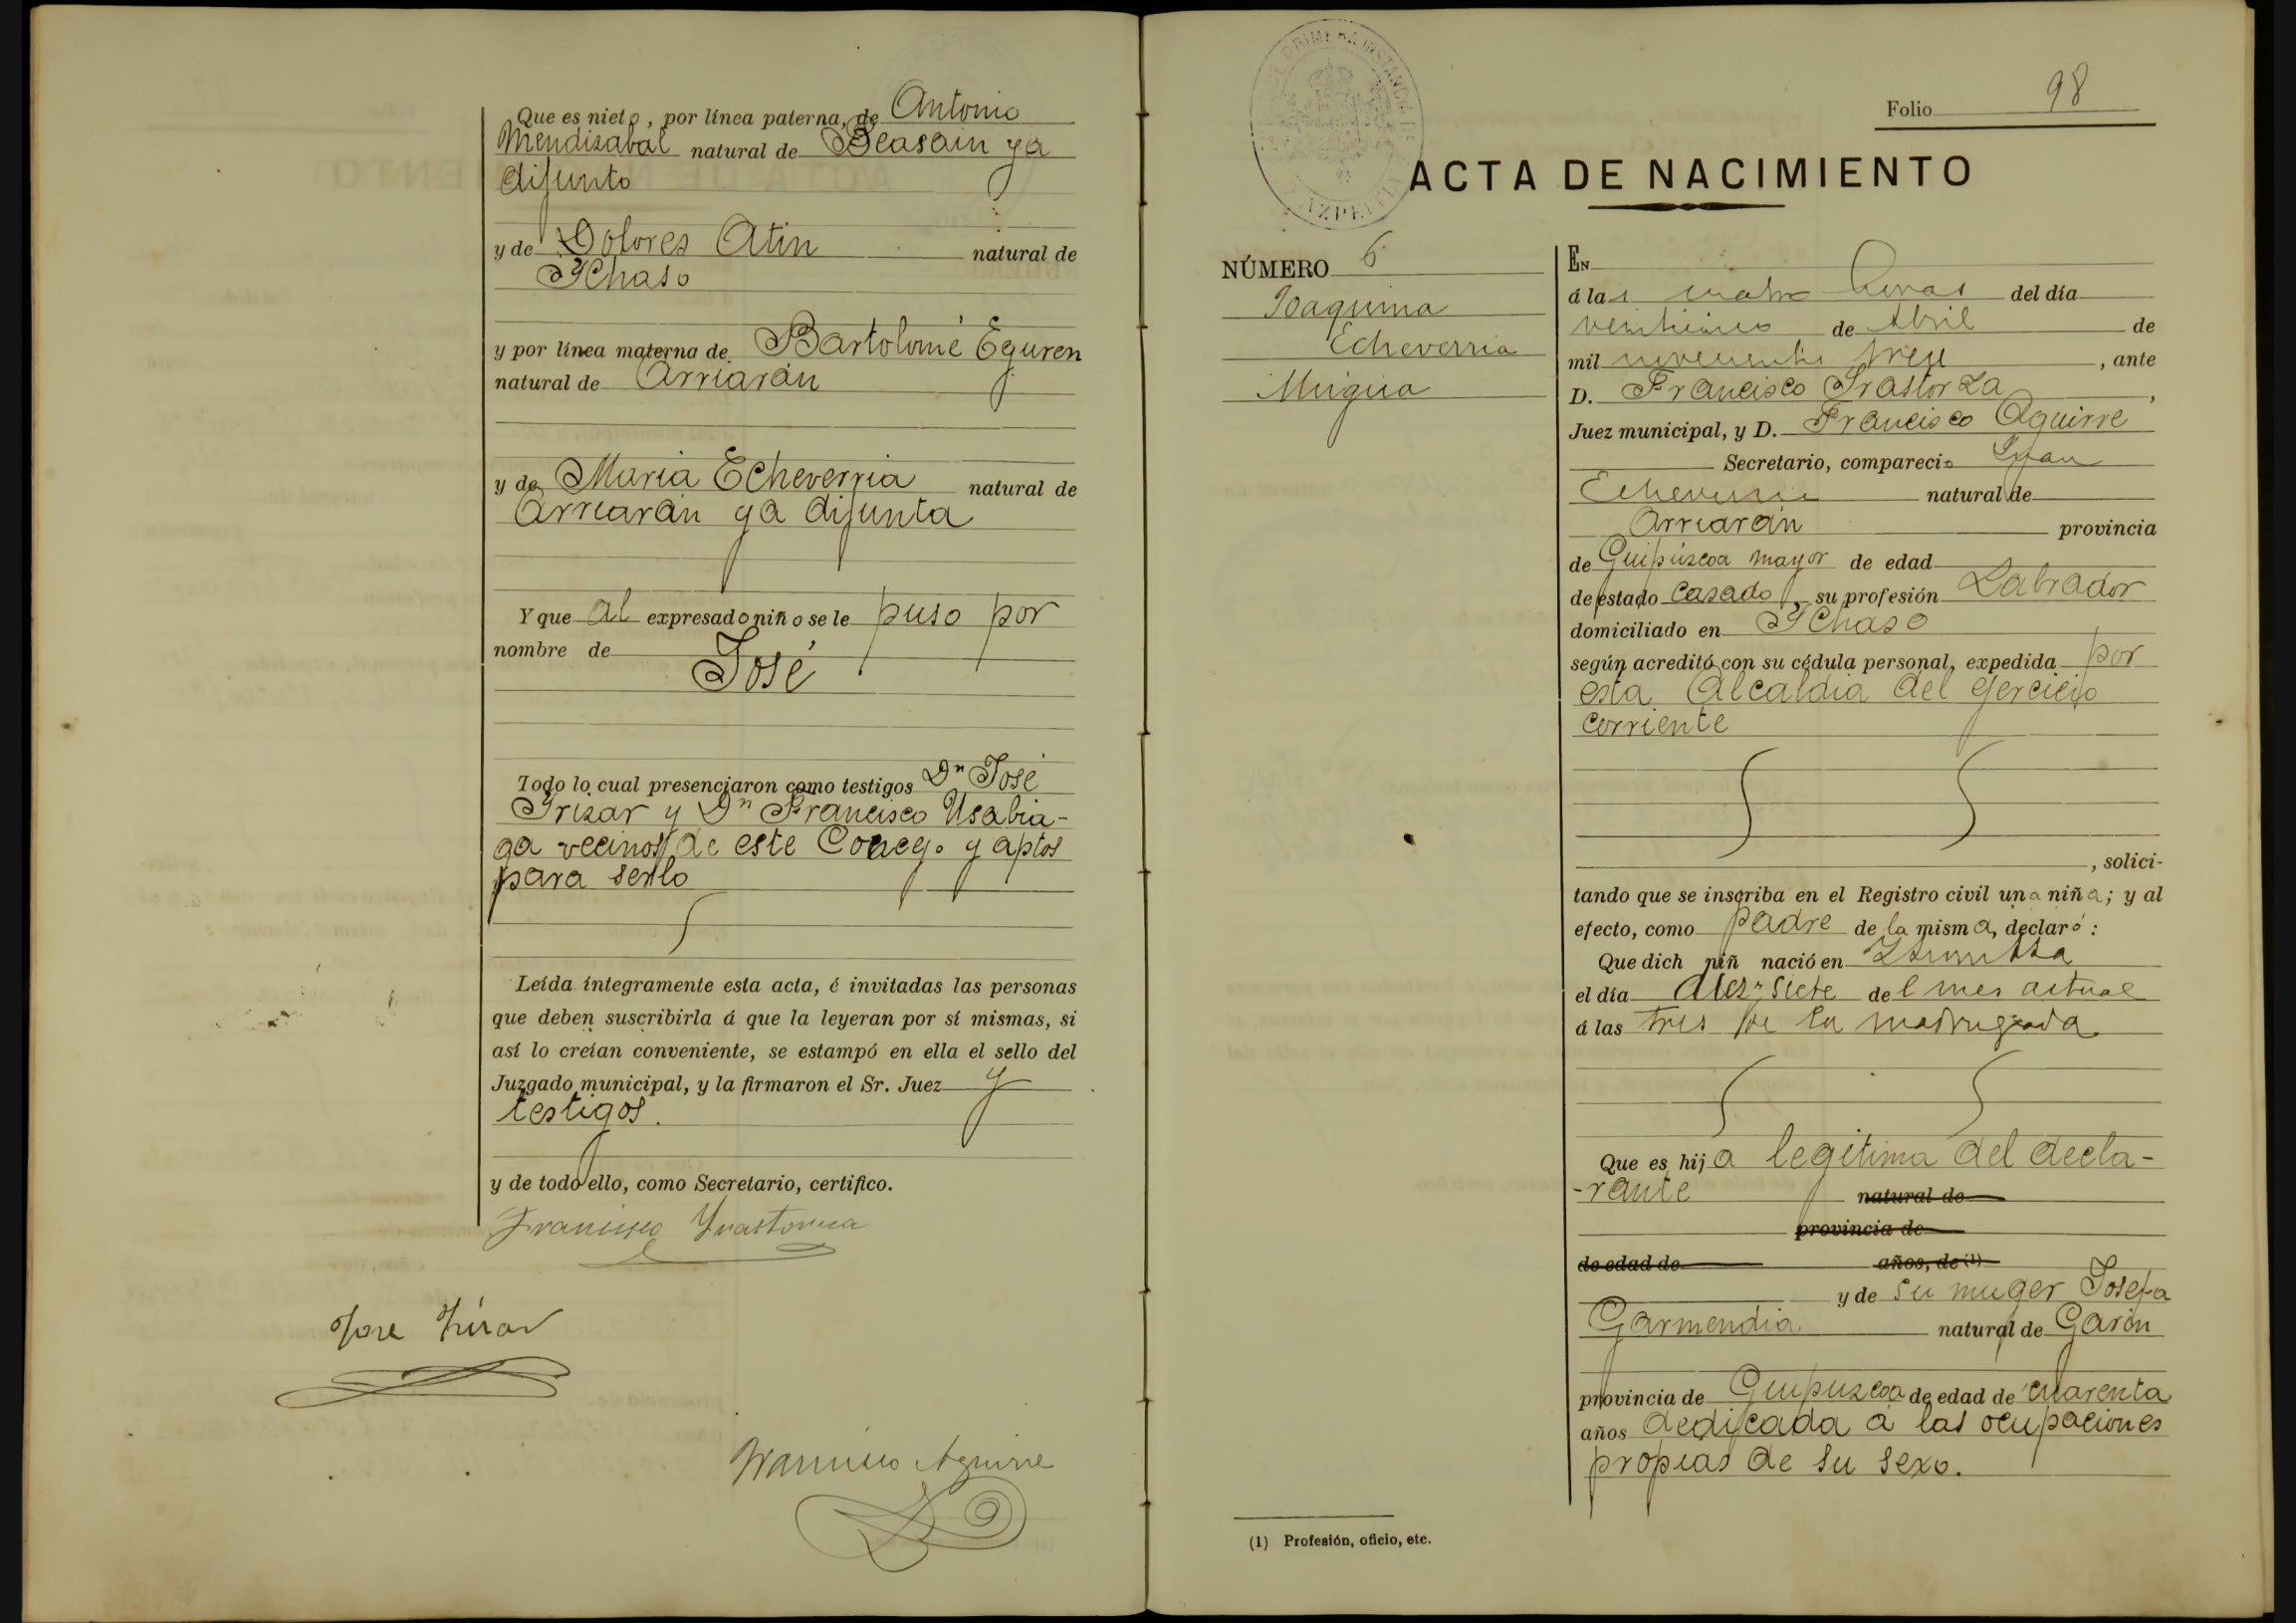 Que es nieto, por línea paterna, de Antonio
Mendizabal natural de Beasain ya
difunto
y de Dolores Atin natural de
Ychaso
y por línea materna de Bartolomé Eguren
natural de Arriarán
y de Maria Echeverria natural de
Arriarán ya difunta
Y que al expresado niño se le puso por
nombre de José
Todo lo cual presenciaron como testigos Dn José
Yrizar y Dn Francisco Usabia-
ga vecinos de este Concejo y aptos
para serlo
Leída íntegramente esta acta, é invitadas las personas
que deben suscribirla á que la leyeran por sí mismas, si
así lo creían conveniente, se estampó en ella el sello del
Juzgado municipal, y la firmaron el Sr. Juez y
testigos.
y de todo ello, como Secretario, certifico.
Francisco Yrastorza
Jose Yrizar
Francisco Aguirre
PRIMERA INSTANCIA DE
AZPEITIA
Folio 98
ACTA DE NACIMIENTO
NÚMERO 6
Joaquina
Echeverria
EN
á las cuatro horas del día
veinticinco de Abril de
mil novecientos trece, ante
D. Francisco Yrastorza,
Juez municipal, y D. Francisco Aguirre
Secretario, compareció Juan
Echeverria natural de
Arriarán provincia
de Guipúzcoa mayor de edad
de estado casado, su profesión Labrador
domiciliado en Ychaso
según acreditó con su cédula personal, expedida por
esta Alcaldia del ejercicio
corriente
, solici-
tando que se inscriba en el Registro civil una niña; y al
efecto, como padre de la misma, declaró:
Que dich niñ nació en
el día diez y siete del mes actual
á las tres de la madrugada
Que es hija legitima del decla-
-rante natural de
provincia de
de edad de años, de (1)
y de su muger Josefa
Garmendia natural de Garin
provincia de Guipuzcoa de edad de cuarenta
años dedicada á las ocupaciones
propias de su sexo.
(1) Profesión, oficio, etc.